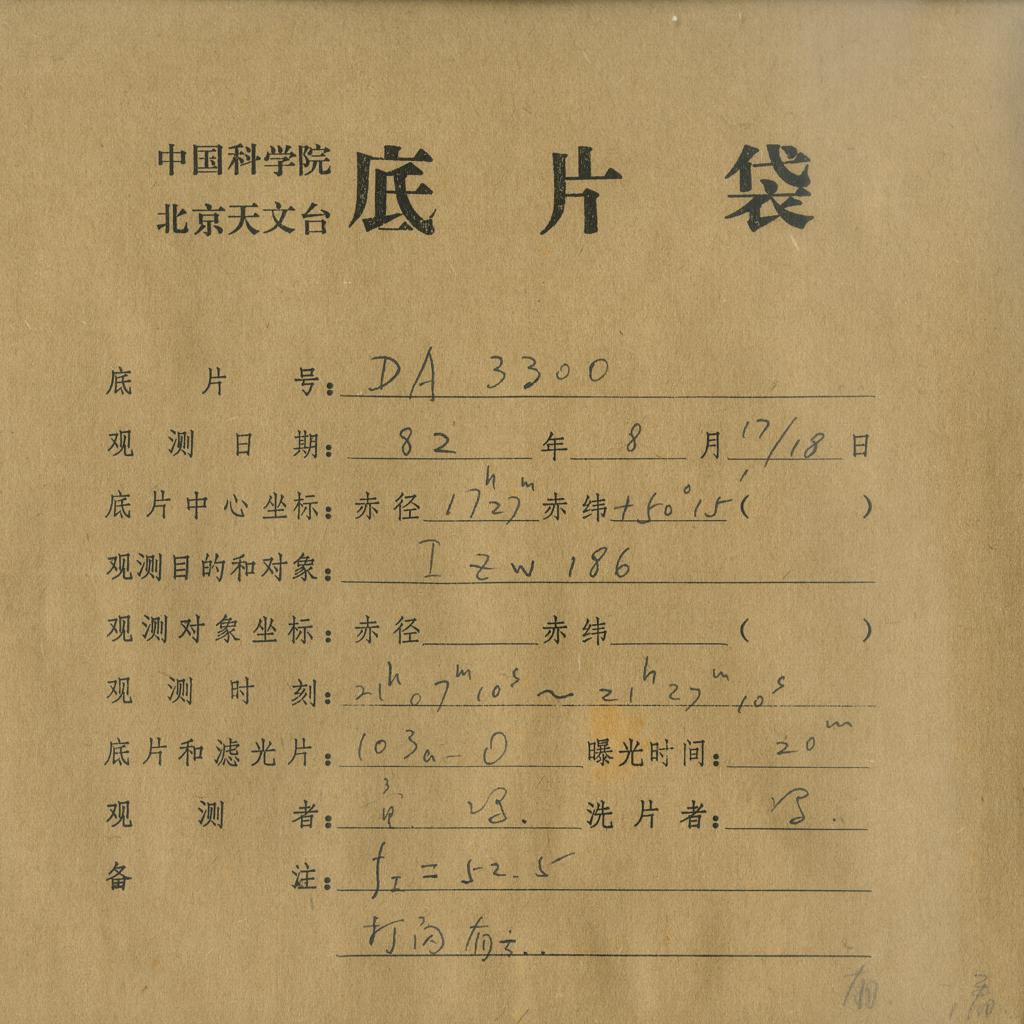 中国科学院
北京天文台
底片袋
底片号: DA 3300
观测日期: 82 年 8 月 17/18 日
底片中心坐标: 赤径 17h27m 赤纬 +50°15′ ( )
观测目的和对象: I Zw 186
观测对象坐标: 赤径 赤纬 ( )
观测时刻: 21h07m10s ~ 21h27m10s
底片和滤光片: 103a-O 曝光时间: 20m
观测者: 冯. 洗片者: 冯.
备注: fI = 52.5
打闪 有云..